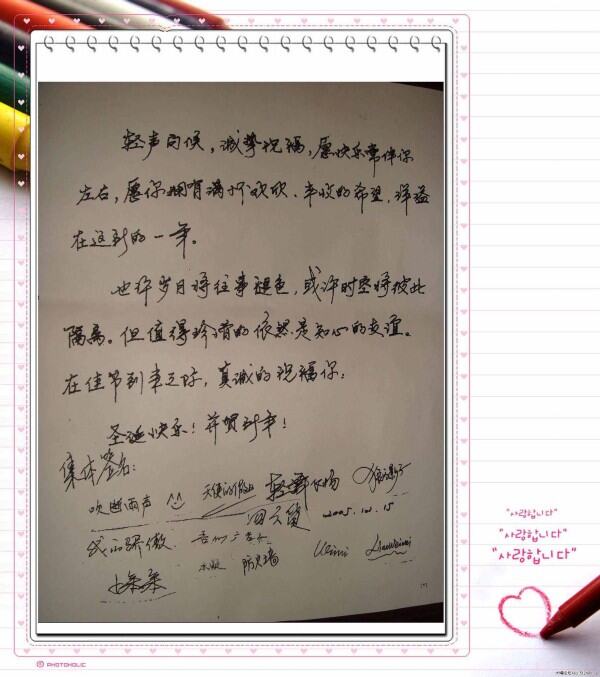 轻声问候，诚挚祝福，愿快乐常伴你
左右，愿你拥有满欢欣、丰收的希望，洋溢
在这新的一年。
也许岁月将往事褪色，或许时空将彼此
隔离。但值得珍惜的依然是知心的友谊。
在佳节到来之际，真诚的祝福你：
圣诞快乐！并贺新年！
集体签名：
吹断雨声 天使的
2005.12.15
我的骄傲
防火墙
"사랑합니다"
"사랑합니다"
"사랑합니다"
© PHOTOHOLIC